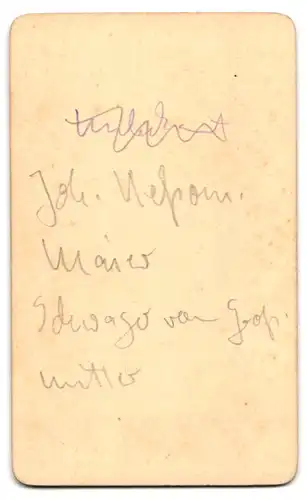 Joh. Nepom.
Maier
Schwager von Groß
mutter